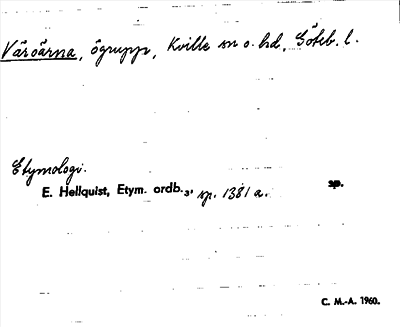 Väröärna, ögrupp, Kville sn o. hd, Göteb. l.
Etymologi.
E. Hellquist, Etym. ordb.3, sp. 1381 a. sp.
C. M.-A. 1960.